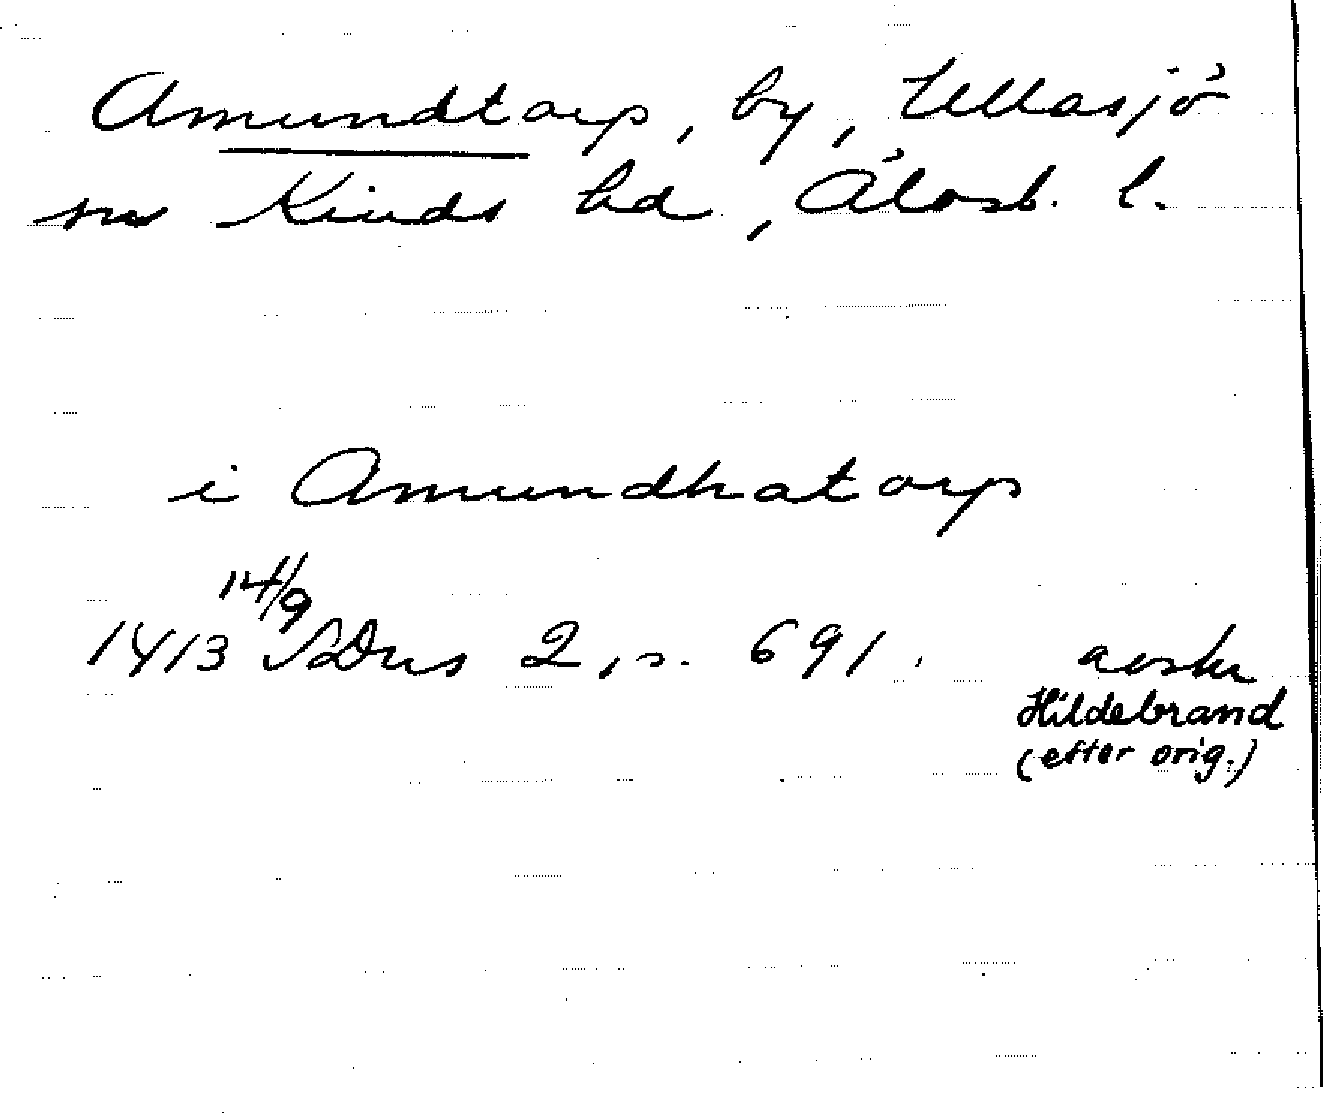 Amundtorp, by, Ullasjö
sn Kinds hd, Älvsb. l.
i Amundhatorp
1413 14/9 SDns 2, s. 691. avskr
Hildebrand
(efter orig.)